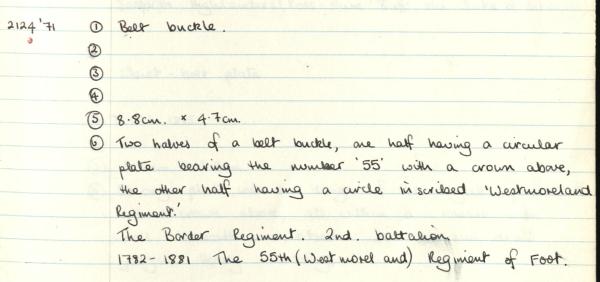 2124'71 ① Belt buckle.
②
③
④
⑤ 8.8cm. x 4.7cm.
⑥ Two halves of a belt buckle, one half having a circular
plate bearing the number '55' with a crown above,
the other half having a circle inscribed 'Westmoreland
Regiment.'
The Border Regiment. 2nd. battalion
1782-1881 The 55th (Westmoreland) Regiment of Foot.